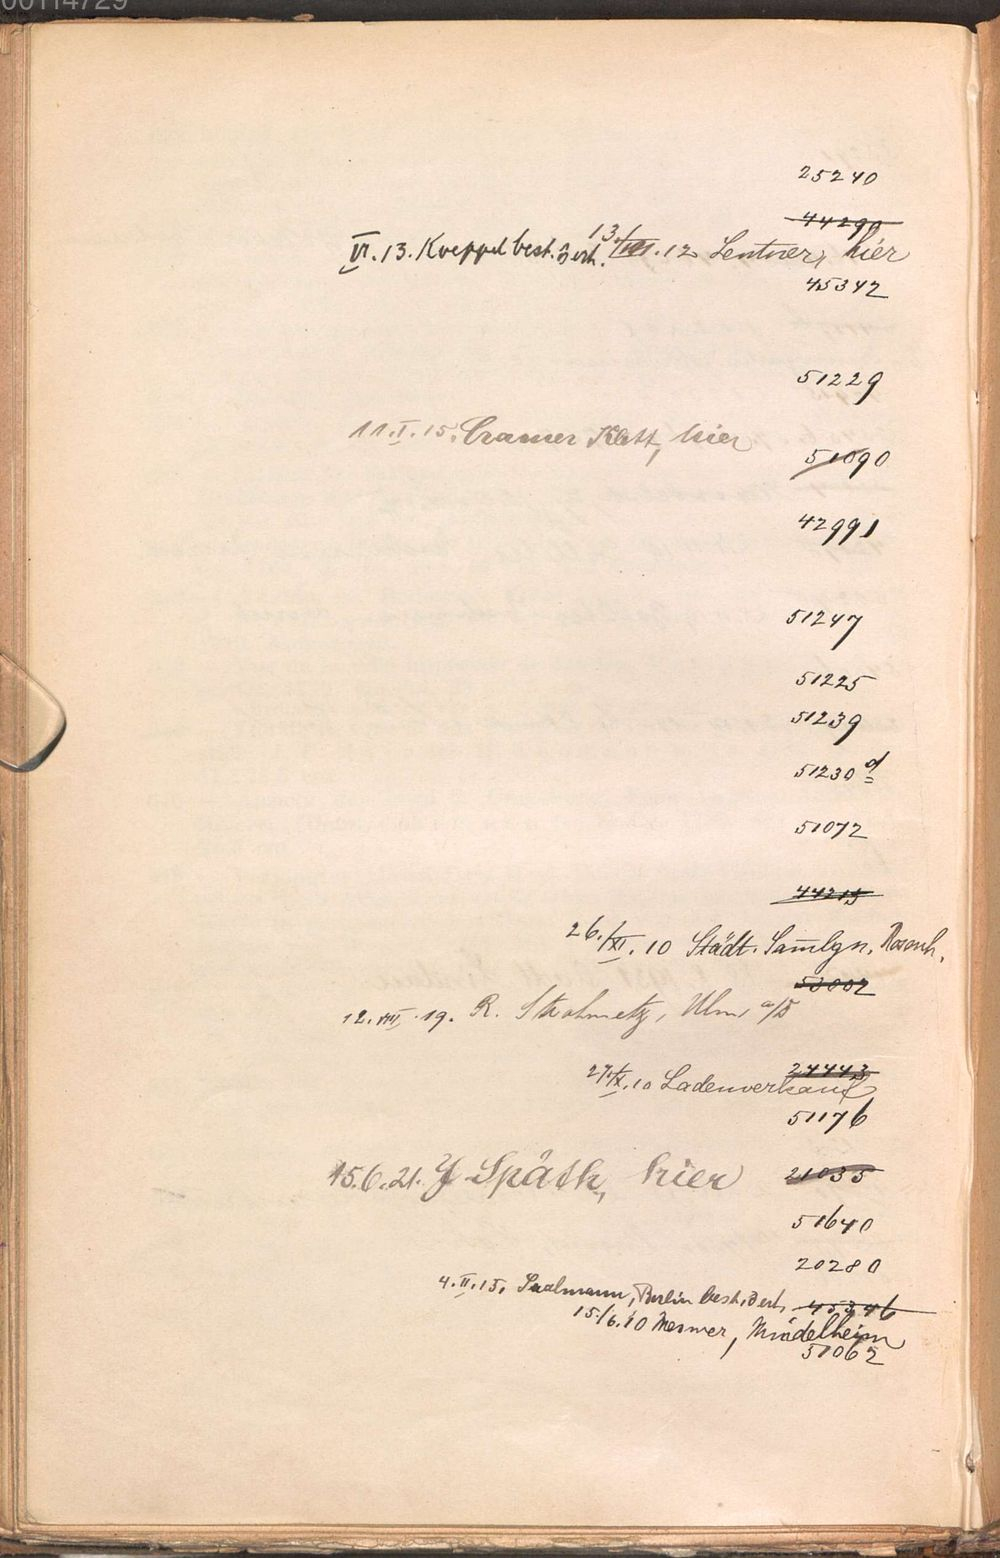 00114729
25240
44290
VI. 13. Koeppel best. Berl. 13./VIII. 12 Lentner, hier
45342
51229
11. I. 15. Cramer Klett, hier
51090
42991
51247
51225
51239
51230 d
51072
44215
26./XI. 10 Städt. Samlgn. Rosenh.
50002
12. VIII. 19. R. Ulm a/D
27./X. 10 Ladenverkauf
24443
51176
15.6.21. J Späth, hier 21035
51640
20280
4. II. 15. Saalmann, Berlin best. Berl. 45346
15./6. 10 Mesmer, Mindelheim
51062